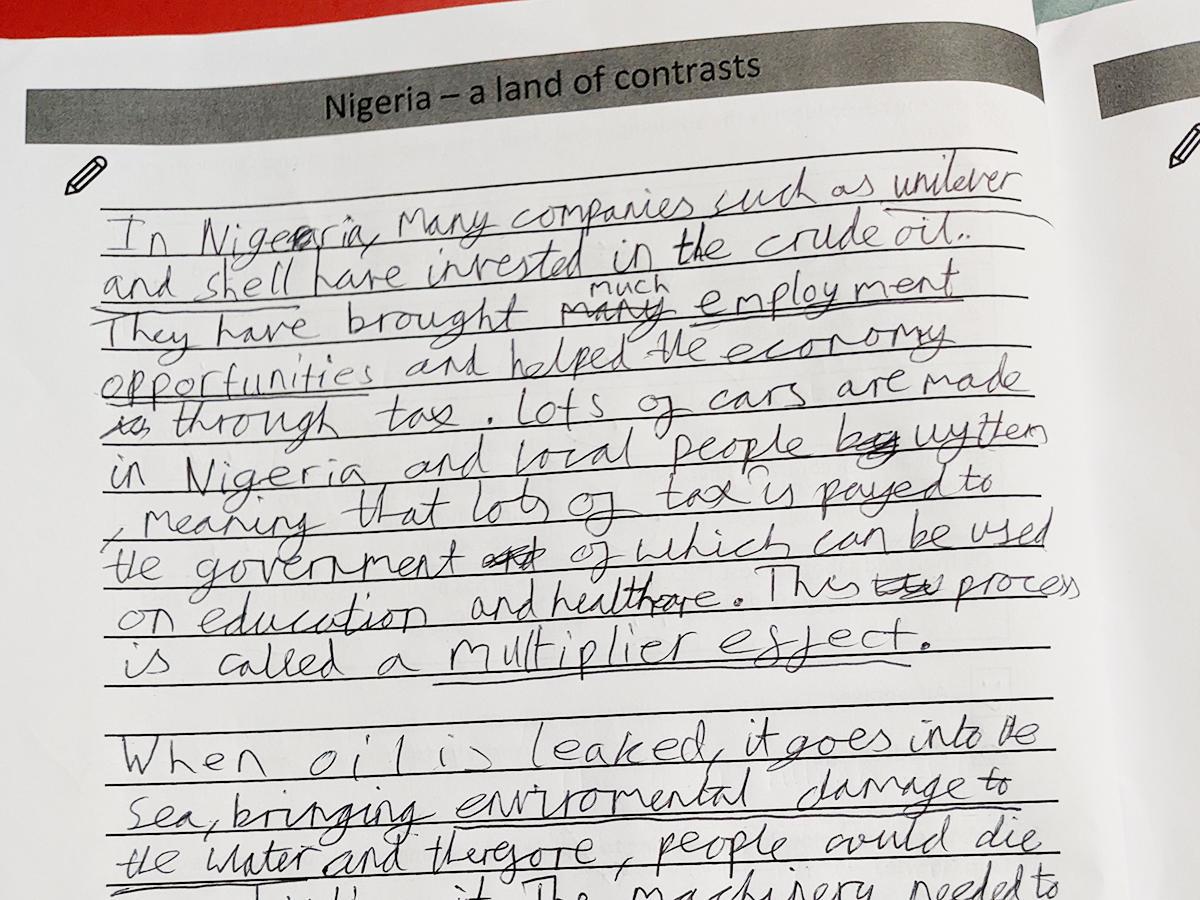 Nigeria – a land of contrasts
In Nigeria, Many companies such as unilever
and shell have invested in the crude oil..
much
They have brought many employment
opportunities and helped the economy
through tax. Lots of cars are made
in Nigeria and local people buy them
, meaning that lots of tax is payed to
the government of which can be used
on education and healthcare. This process
is called a multiplier effect.
When oil is leaked, it goes into the
sea, bringing enviromental damage to
the water and therefore, people could die
it. The machinery needed to